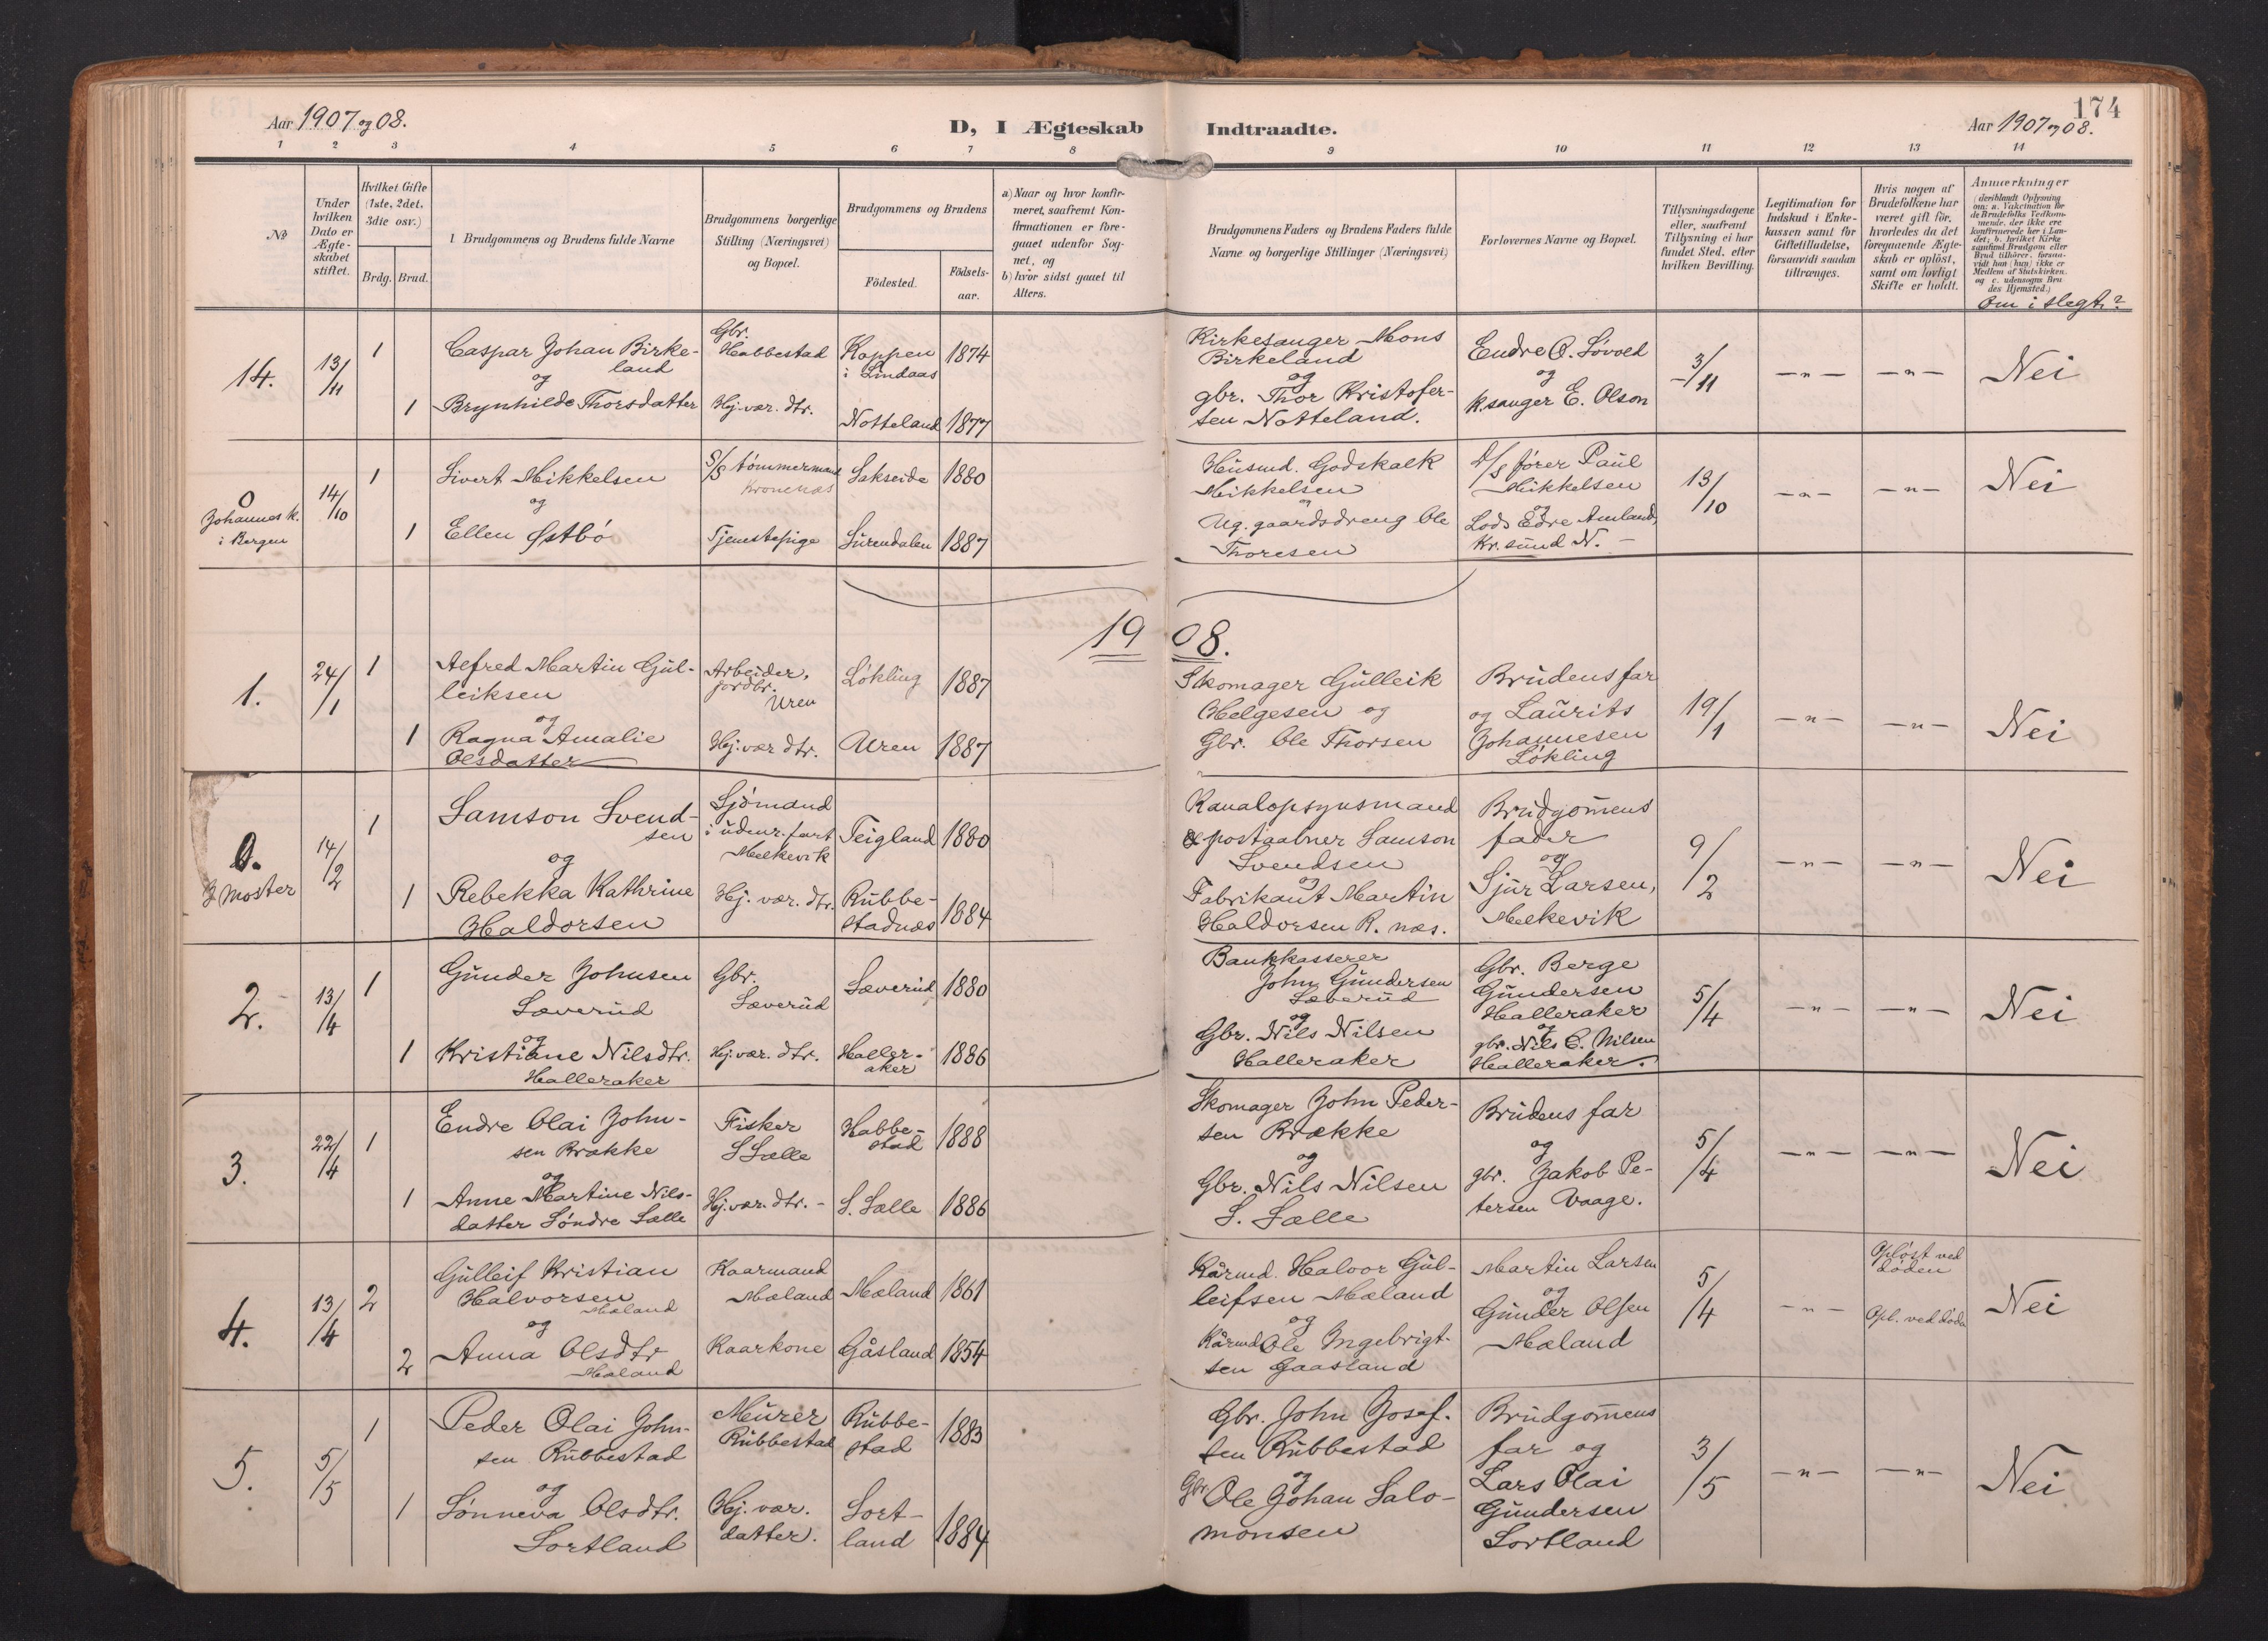 174
Aar 1907 og 08.
D, I Ægteskab Indtraadte.
Aar 1907 og 08.
1 2 3 4 5 6 7 8 9 10 11 12 13 14
No
Under hvilken Dato er Ægteskabet stiftet.
Hvilket Gifte (1ste, 2det, 3die osv.)
Brdg. Brud.
Brudgommens og Brudens fulde Navne
Brudgommens borgerlige Stilling (Næringsvei) og Bopæl.
Brudgommens og Brudens
Födested.
Födselsaar.
a) Naar og hvor konfirmeret, saafremt Konfirmationen er foregaaet udenfor Sognet, og
b) hvor sidst gaaet til Alters.
Brudgommens Faders og Brudens Faders fulde Navne og borgerlige Stillinger (Næringsvei)
Forlovernes Navne og Bopæl.
Tillysningsdagene eller, saafremt Tillysning ei har fundet Sted, efter hvilken Bevilling.
Legitimation for Indskud i Enkekassen samt for Giftetilladelse, forsaavidt saadan tiltrænges.
Hvis nogen af Brudefolkene har været gift för, hvorledes da det foregaaende Ægteskab er oplöst, samt om lovligt Skifte er holdt.
Anmærkninger (deriblandt Oplysning om: a. Vakcination for de Brudefolks Vedkommende, der ikke ere konfirmerede her i Landet; b. hvilket Kirkesamfund Brudgom eller Brud tilhörer, forsaavidt han (hun) ikke er Medlem af Statskirken, og c. udensogns Brudes Hjemsted.)
Om i slegt?
14.
13/11
1
Caspar Johan Birkeland
og
1
Brynhilde Thorsdatter
Gbr.
Habbestad
Hj. vær. dtr.
Koppen
i Lindaas
1874
Notteland 1877
Kirkesanger Mons
Birkeland
og
gbr. Thor Kristofersen
Notteland.
Endre O. Løvold
og
k.sanger E. Olson
3/11
—"—
—"—
Nei
0
Johannes k.
i Bergen
14/10
1
Sivert Mikkelsen
og
1
Ellen Østbø
S/S tømmermand
Kronenæs
Tjenestepige
Sakseide 1880
Surendalen 1887
Husmd. Godskalk
Mikkelsen
og
Ug. gaardsdreng Ole
Thoresen
D/S fører Paul
Mikkelsen
og
Lods Edre Amland,
Kr.sund N. –
13/10
—"—
—"—
Nei
1908.
1.
24/1
1
Alfred Martin Gulleiksen
og
1
Ragna Amalie
Olsdatter
Arbeider,
jordbr.
Uren
Hj. vær dtr.
Løkling 1887
Uren 1887
Skomager Gulleik
Helgesen og
Gbr. Ole Thorsen
Brudens far
og Laurits
Johannesen
Løkling
19/1
—"—
—"—
Nei
0.
I Moster
14/2
1
Samson Svendsen
og
1
Rebekka Kathrine
Haldorsen
Sjømand
i udenr. fart
Melkevik
Hj. vær. dtr.
Teigland 1880
Rubbestadnæs 1884
Kanalopsynsmand
& postaabner Samson
Svendsen
og
Fabrikant Martin
Haldorsen R. næs.
Brudgomens
fader
og
Sjur Larsen,
Melkevik
9/2
—"—
—"—
Nei
2.
13/4
1
Gunder Johnsen
Sæverud
og
1
Kristiane Nilsdtr.
Halleraker
Gbr.
Sæverud
Hj. vær. dtr.
Sæverud 1880
Halleraker 1886
Bankkasserer
John Gundersen
Sæverud
og
Gbr. Nils Nilsen
Halleraker
Gbr. Berge
Gundersen
Halleraker
og
gbr. Nils C. Nilsen
Halleraker.
5/4
—"—
—"—
Nei
3.
22/4
1
Endre Olai Johnsen
Brække
og
1
Anne Martine Nilsdatter
Søndre Sælle
Fisker
S Sælle
Hj. vær. dtr. –
Habbestad 1888
S. Sælle 1886
Skomager John Pedersen
Brække
og
Gbr. Nils Nilsen
S. Sælle
Brudens far
og
gbr. Jakob Petersen
Vaage.
5/4
—"—
—"—
Nei
4.
13/4
2
Gulleif Kristian
Halvorsen
Mæland
og
2
Anna Olsdtr
Mæland
Kaarmand
Mæland
Kaarkone
Mæland 1861
Gåsland 1854
Kårmd. Halvor Gulleifsen
Mæland
og
Kårmd Ole Ingebrigtsen
Gaasland
Martin Larsen
og
Gunder Olsen
Mæland
5/4
—"—
Opløst ved
døden
Opl. ved død
Nei
5.
5/5
1
Peder Olai Johnsen
Rubbestad
og
1
Sønneva Olsdtr.
Sortland
Murer
Rubbestad
Hj. vær.
datter.
Rubbestad 1883
Sortland 1884
Gbr. John Josefsen
Rubbestad
og
Gbr Ole Johan Salomonsen
Brudgomens
far og
Lars Olai
Gundersen
Sortland
3/5
—"—
—"—
Nei